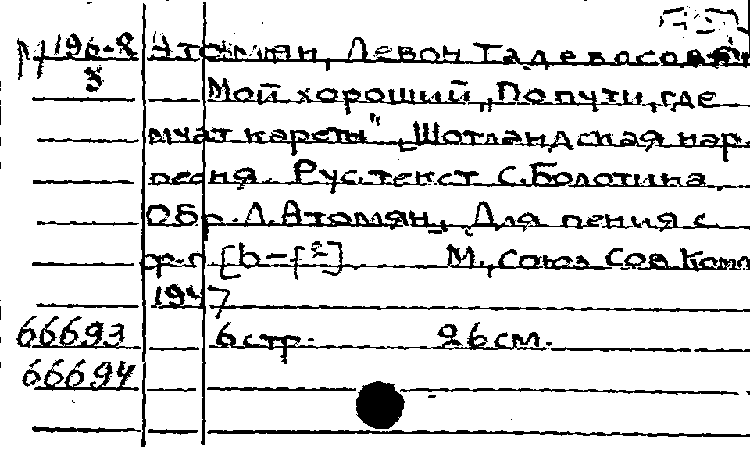 М196-8 Атомян, Левон Тадевосович
3 Мой хороший „По пути, где
мчат кареты" Шотландская нар.
песня. Рус. текст С. Болотина
Обр. Л. Атомян. Для пения с
ф-п. [b-f²] М., Союз Сов Комп
1947
66693 6 стр. 26 см.
66694